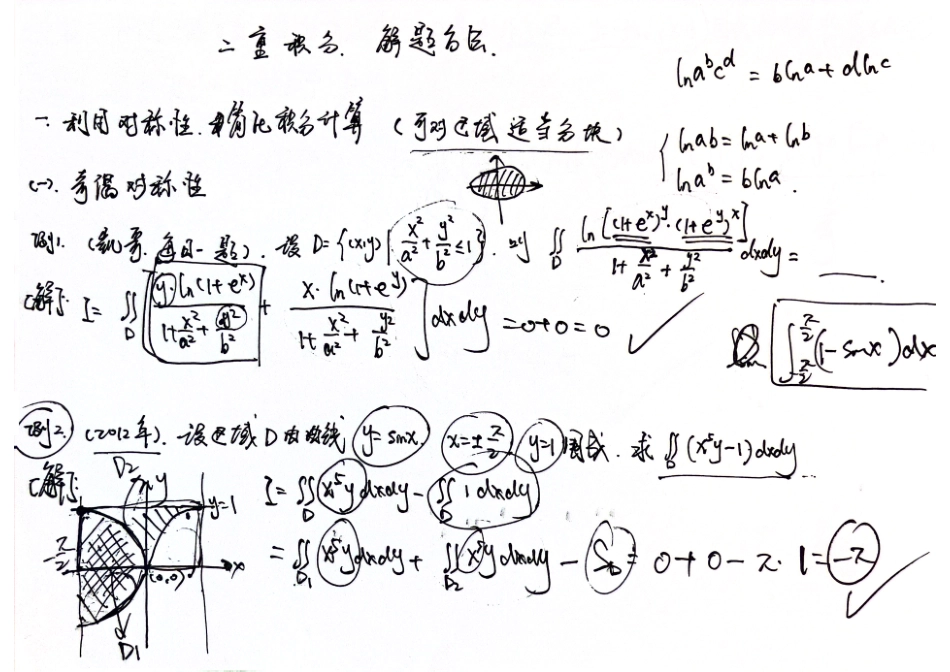 二重积分. 解题方法.
ln a^b c^d = b ln a + d ln c
一. 利用对称性. 简化积分计算 (可对区域适当分块)
ln ab = ln a + ln b
ln a^b = b ln a.
(一). 奇偶对称性
例1. (每日一题). 设 D = {(x,y) | x²/a² + y²/b² ≤ 1}. 则 ∬_D ln[(1+e^x)^y · (1+e^y)^x] / (1 + x²/a² + y²/b²) dxdy = ____.
[解]: I = ∬_D [ y·ln(1+e^x) / (1 + x²/a² + y²/b²) + x·ln(1+e^y) / (1 + x²/a² + y²/b²) ] dxdy = 0+0 = 0
∫_{-π/2}^{π/2} (1 - sin x) dx
例2. (2012年). 设区域 D 由曲线 y = sin x, x = ±π/2, y = 1 围成. 求 ∬_D (x⁵y - 1) dxdy
[解]: I = ∬_D x⁵y dxdy - ∬_D 1 dxdy
= ∬_{D1} x⁵y dxdy + ∬_{D2} x⁵y dxdy - S_D = 0 + 0 - π · 1 = -π
D2
y
y=1
π/2
(0,0)
x
D1